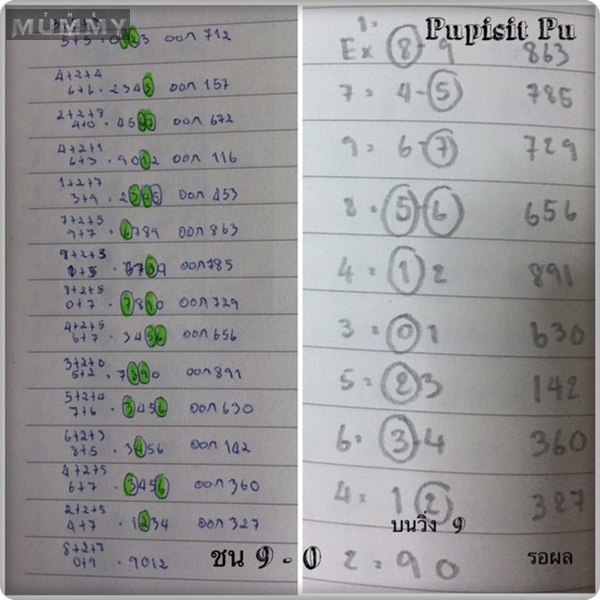 THE
MUMMY
5+5 = 0123 ออก 712
4+2+4
6+6 = 2345 ออก 157
2+2+8
4+0 = 4567 ออก 672
4+2+1
6+3 = 9012 ออก 116
1+2+7
3+9 = 2345 ออก 453
7+2+5
9+7 = 6789 ออก 863
8+2+3
= 6789 ออก 785
8+2+5
0+7 = 7890 ออก 729
4+2+5
6+7 = 3456 ออก 656
3+2+0
5+2 = 7890 ออก 891
5+2+4
7+6 = 3456 ออก 630
6+2+3
8+5 = 3456 ออก 142
4+2+5
6+7 = 3456 ออก 360
2+2+5
4+7 = 1234 ออก 327
8+2+7
0+9 = 9012
ชน 9 - 0
Pupisit Pu
Ex 8-9 863
7 = 4-5 785
9 = 6-7 729
8 = 5-6 656
4 = 1 2 891
3 = 0 1 630
5 = 2 3 142
6 = 3-4 360
4 = 1 2 327
บนวิ่ง 9
2 = 9 0 รอผล